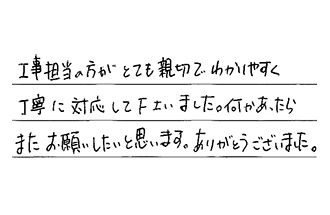 工事担当の方がとても親切でわかりやすく
丁寧に対応して下さいました。何かあったら
またお願いしたいと思います。ありがとうございました。